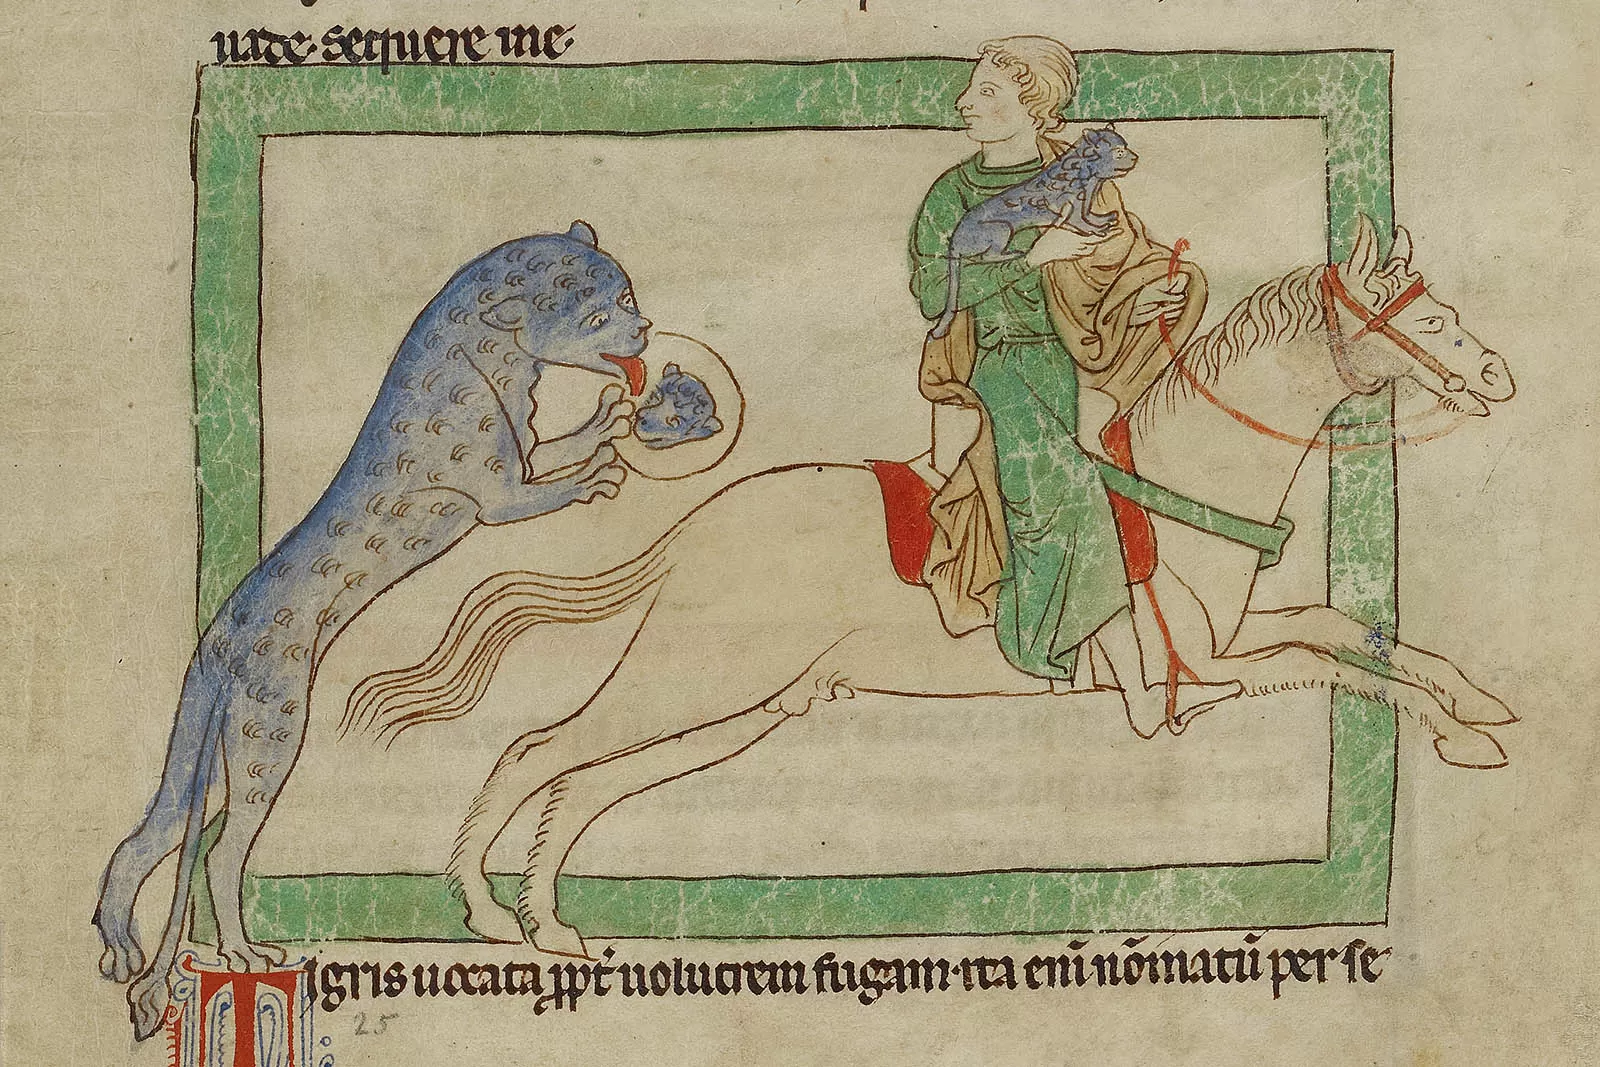 uade· sequere me·
Tigris uocata ꝓpt̄ uolucrem fugam· ita enī nōmatū per se
25